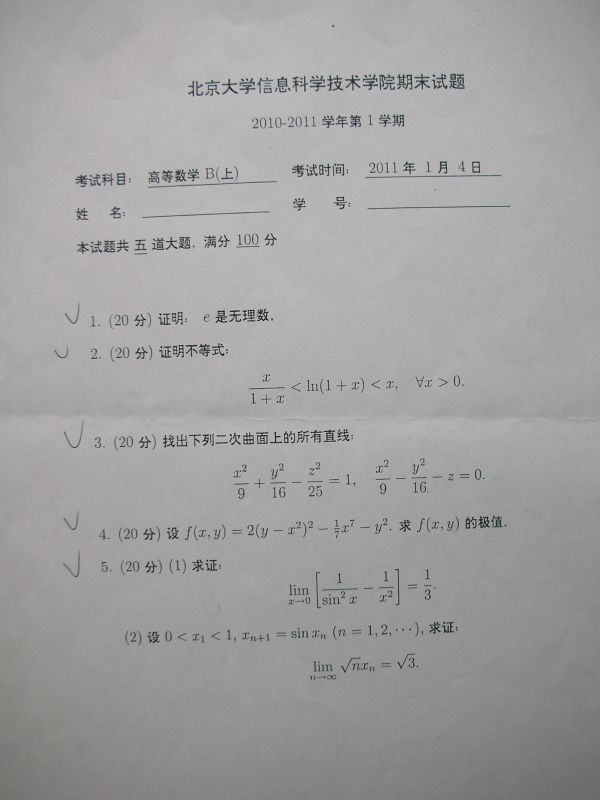 北京大学信息科学技术学院期末试题
2010-2011 学年第 1 学期
考试科目: 高等数学 B(上) 考试时间: 2011 年 1 月 4 日
姓 名: 学 号:
本试题共 五 道大题, 满分 100 分
1. (20 分) 证明: e 是无理数.
2. (20 分) 证明不等式:
x/(1+x) < ln(1+x) < x, ∀x > 0.
3. (20 分) 找出下列二次曲面上的所有直线:
x²/9 + y²/16 − z²/25 = 1, x²/9 − y²/16 − z = 0.
4. (20 分) 设 f(x,y) = 2(y − x²)² − 1/7 x⁷ − y². 求 f(x,y) 的极值.
5. (20 分) (1) 求证:
lim x→0 [1/sin² x − 1/x²] = 1/3.
(2) 设 0 < x₁ < 1, xₙ₊₁ = sin xₙ (n = 1, 2, ···), 求证:
lim n→∞ √n xₙ = √3.